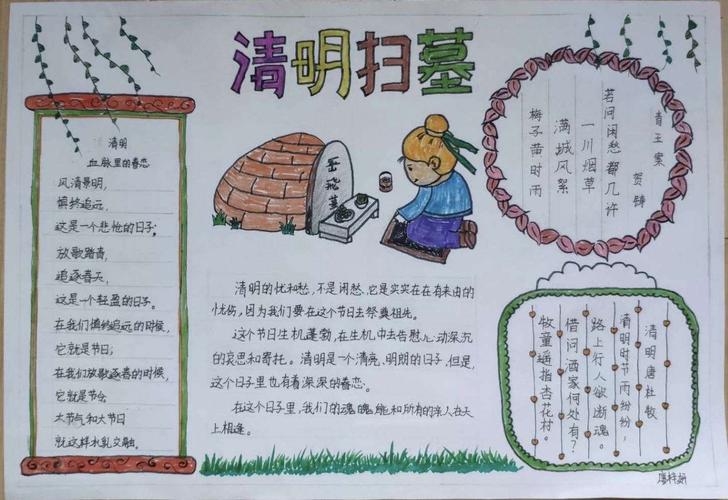 清明扫墓
清明
血脉里的眷恋
风清景明,
慎终追远,
这是一个悲怆的日子;
放歌踏青,
追逐春天,
这是一个轻盈的日子。
在我们慎终追远的时候,
它就是节日;
在我们放歌逐春的时候,
它就是节令
大节气和大节日
就这样水乳交融。
岳飞墓
清明的忧和愁,不是闲愁,它是实实在在有来由的
忧伤,因为我们要在这个节日去祭奠祖先。
这个节日生机蓬勃,在生机中去告慰心动深沉
的哀思和寄托。清明是一个清亮、明朗的日子,但是,
这个日子里也有着深深的眷恋。
在这个日子里,我们的魂魄能和所有的亲人在天
上相逢。
青玉案
贺铸
若问闲愁都几许
一川烟草
满城风絮
梅子黄时雨
清明唐杜牧
清明时节雨纷纷,
路上行人欲断魂。
借问酒家何处有?
牧童遥指杏花村。